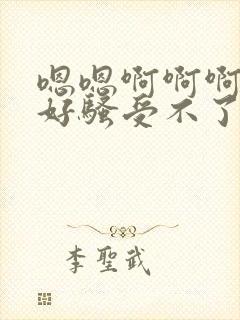 嗯嗯啊啊啊
好骚受不了
李聖武